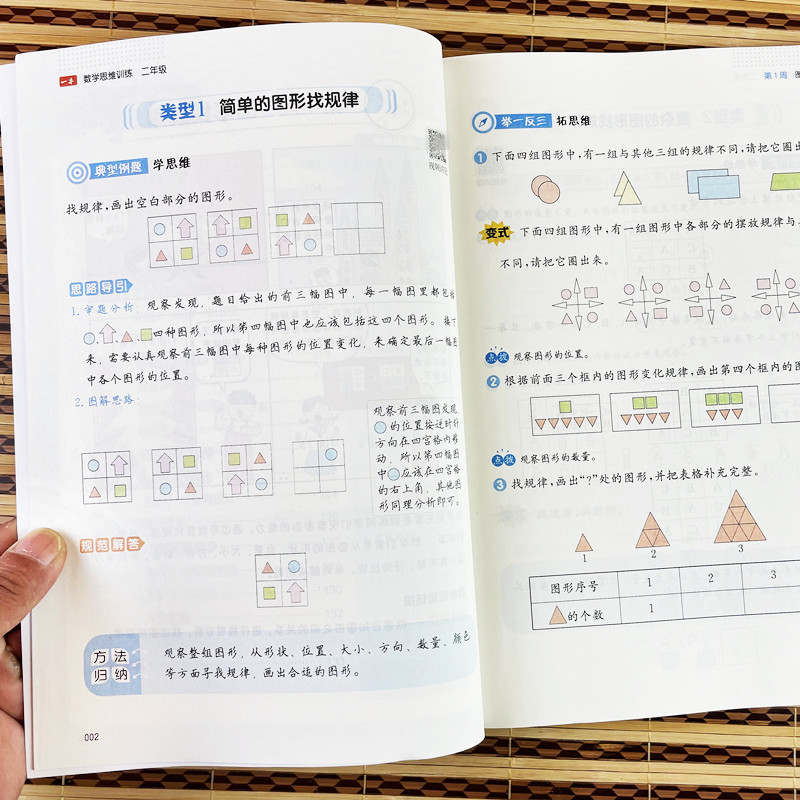 一本 数学思维训练 二年级
类型1 简单的图形找规律
典型例题 学思维
找规律,画出空白部分的图形。
思路导引
1. 审题分析 观察发现,题目给出的前三幅图中,每一幅图里都包括
四种图形,所以第四幅图中也应该包括这四个图形。接下
来,需要认真观察前三幅图中每种图形的位置变化,来确定最后一幅图
中各个图形的位置。
2. 图解思路
观察前三幅图发现
的位置按逆时针
方向在四宫格内移
动,所以第四幅图
中 应该在四宫格
的右上角,其他图
形同理分析即可。
规范解答
方法
归纳
观察整组图形,从形状、位置、大小、方向、数量、颜色
等方面寻找规律,画出合适的图形。
002
第1周
举一反三 拓思维
1 下面四组图形中,有一组与其他三组的规律不同,请把它圈出
变式 下面四组图形中,有一组图形中各部分的摆放规律与
不同,请把它圈出来。
点拨 观察图形的位置。
2 根据前面三个框内的图形变化规律,画出第四个框内的图
点拨 观察图形的数量。
3 找规律,画出“?”处的图形,并把表格补充完整。
1 2 3
图形序号 1 2 3
的个数 1